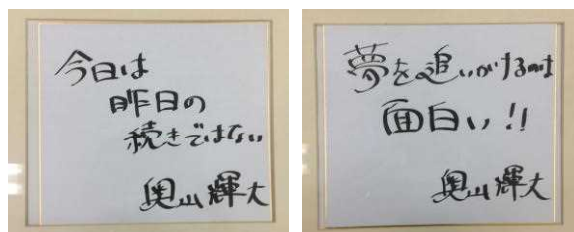 今日は
昨日の
続きではない
奥山輝大
夢を追いかけるのは
面白い!!
奥山輝大